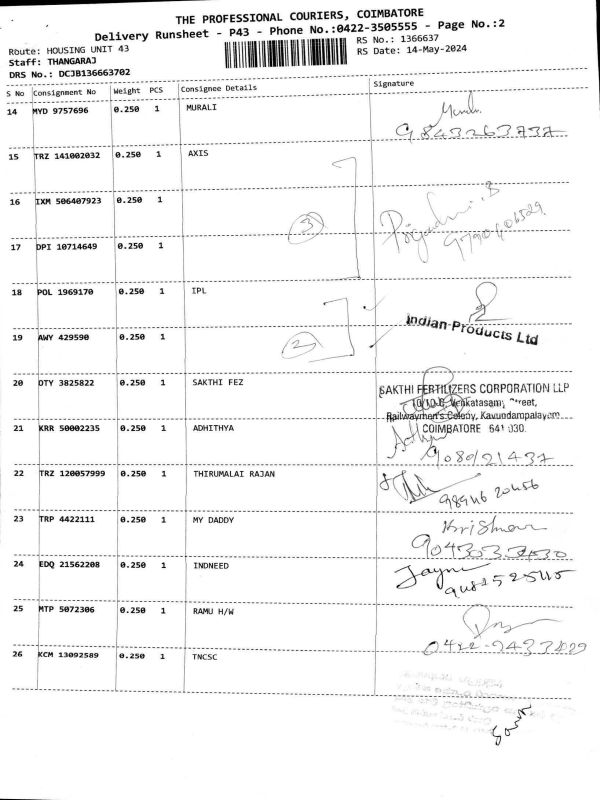 THE PROFESSIONAL COURIERS, COIMBATORE
Delivery Runsheet - P43 - Phone No.:0422-3505555 - Page No.:2
Route: HOUSING UNIT 43 RS No.: 1366637
Staff: THANGARAJ RS Date: 14-May-2024
DRS No.: DCJB136663702
S No Consignment No Weight PCS Consignee Details Signature
14 MYD 9757696 0.250 1 MURALI
9843263737
15 TRZ 141002032 0.250 1 AXIS
16 IXM 506407923 0.250 1
3
9790406529
17 DPI 10714649 0.250 1
18 POL 1969170 0.250 1 IPL
Indian Products Ltd
19 AWY 429590 0.250 1
2
20 OTY 3825822 0.250 1 SAKTHI FEZ
SAKTHI FERTILIZERS CORPORATION LLP
Railwaymen's Colony, Kavundampalayam
21 KRR 50002235 0.250 1 ADHITHYA
COIMBATORE 641 030.
9089121437
22 TRZ 120057999 0.250 1 THIRUMALAI RAJAN
98946 20456
23 TRP 4422111 0.250 1 MY DADDY
Krishnan
24 EDQ 21562208 0.250 1 INDNEED
25 MTP 5072306 0.250 1 RAMU H/W
26 KCM 13092589 0.250 1 TNCSC